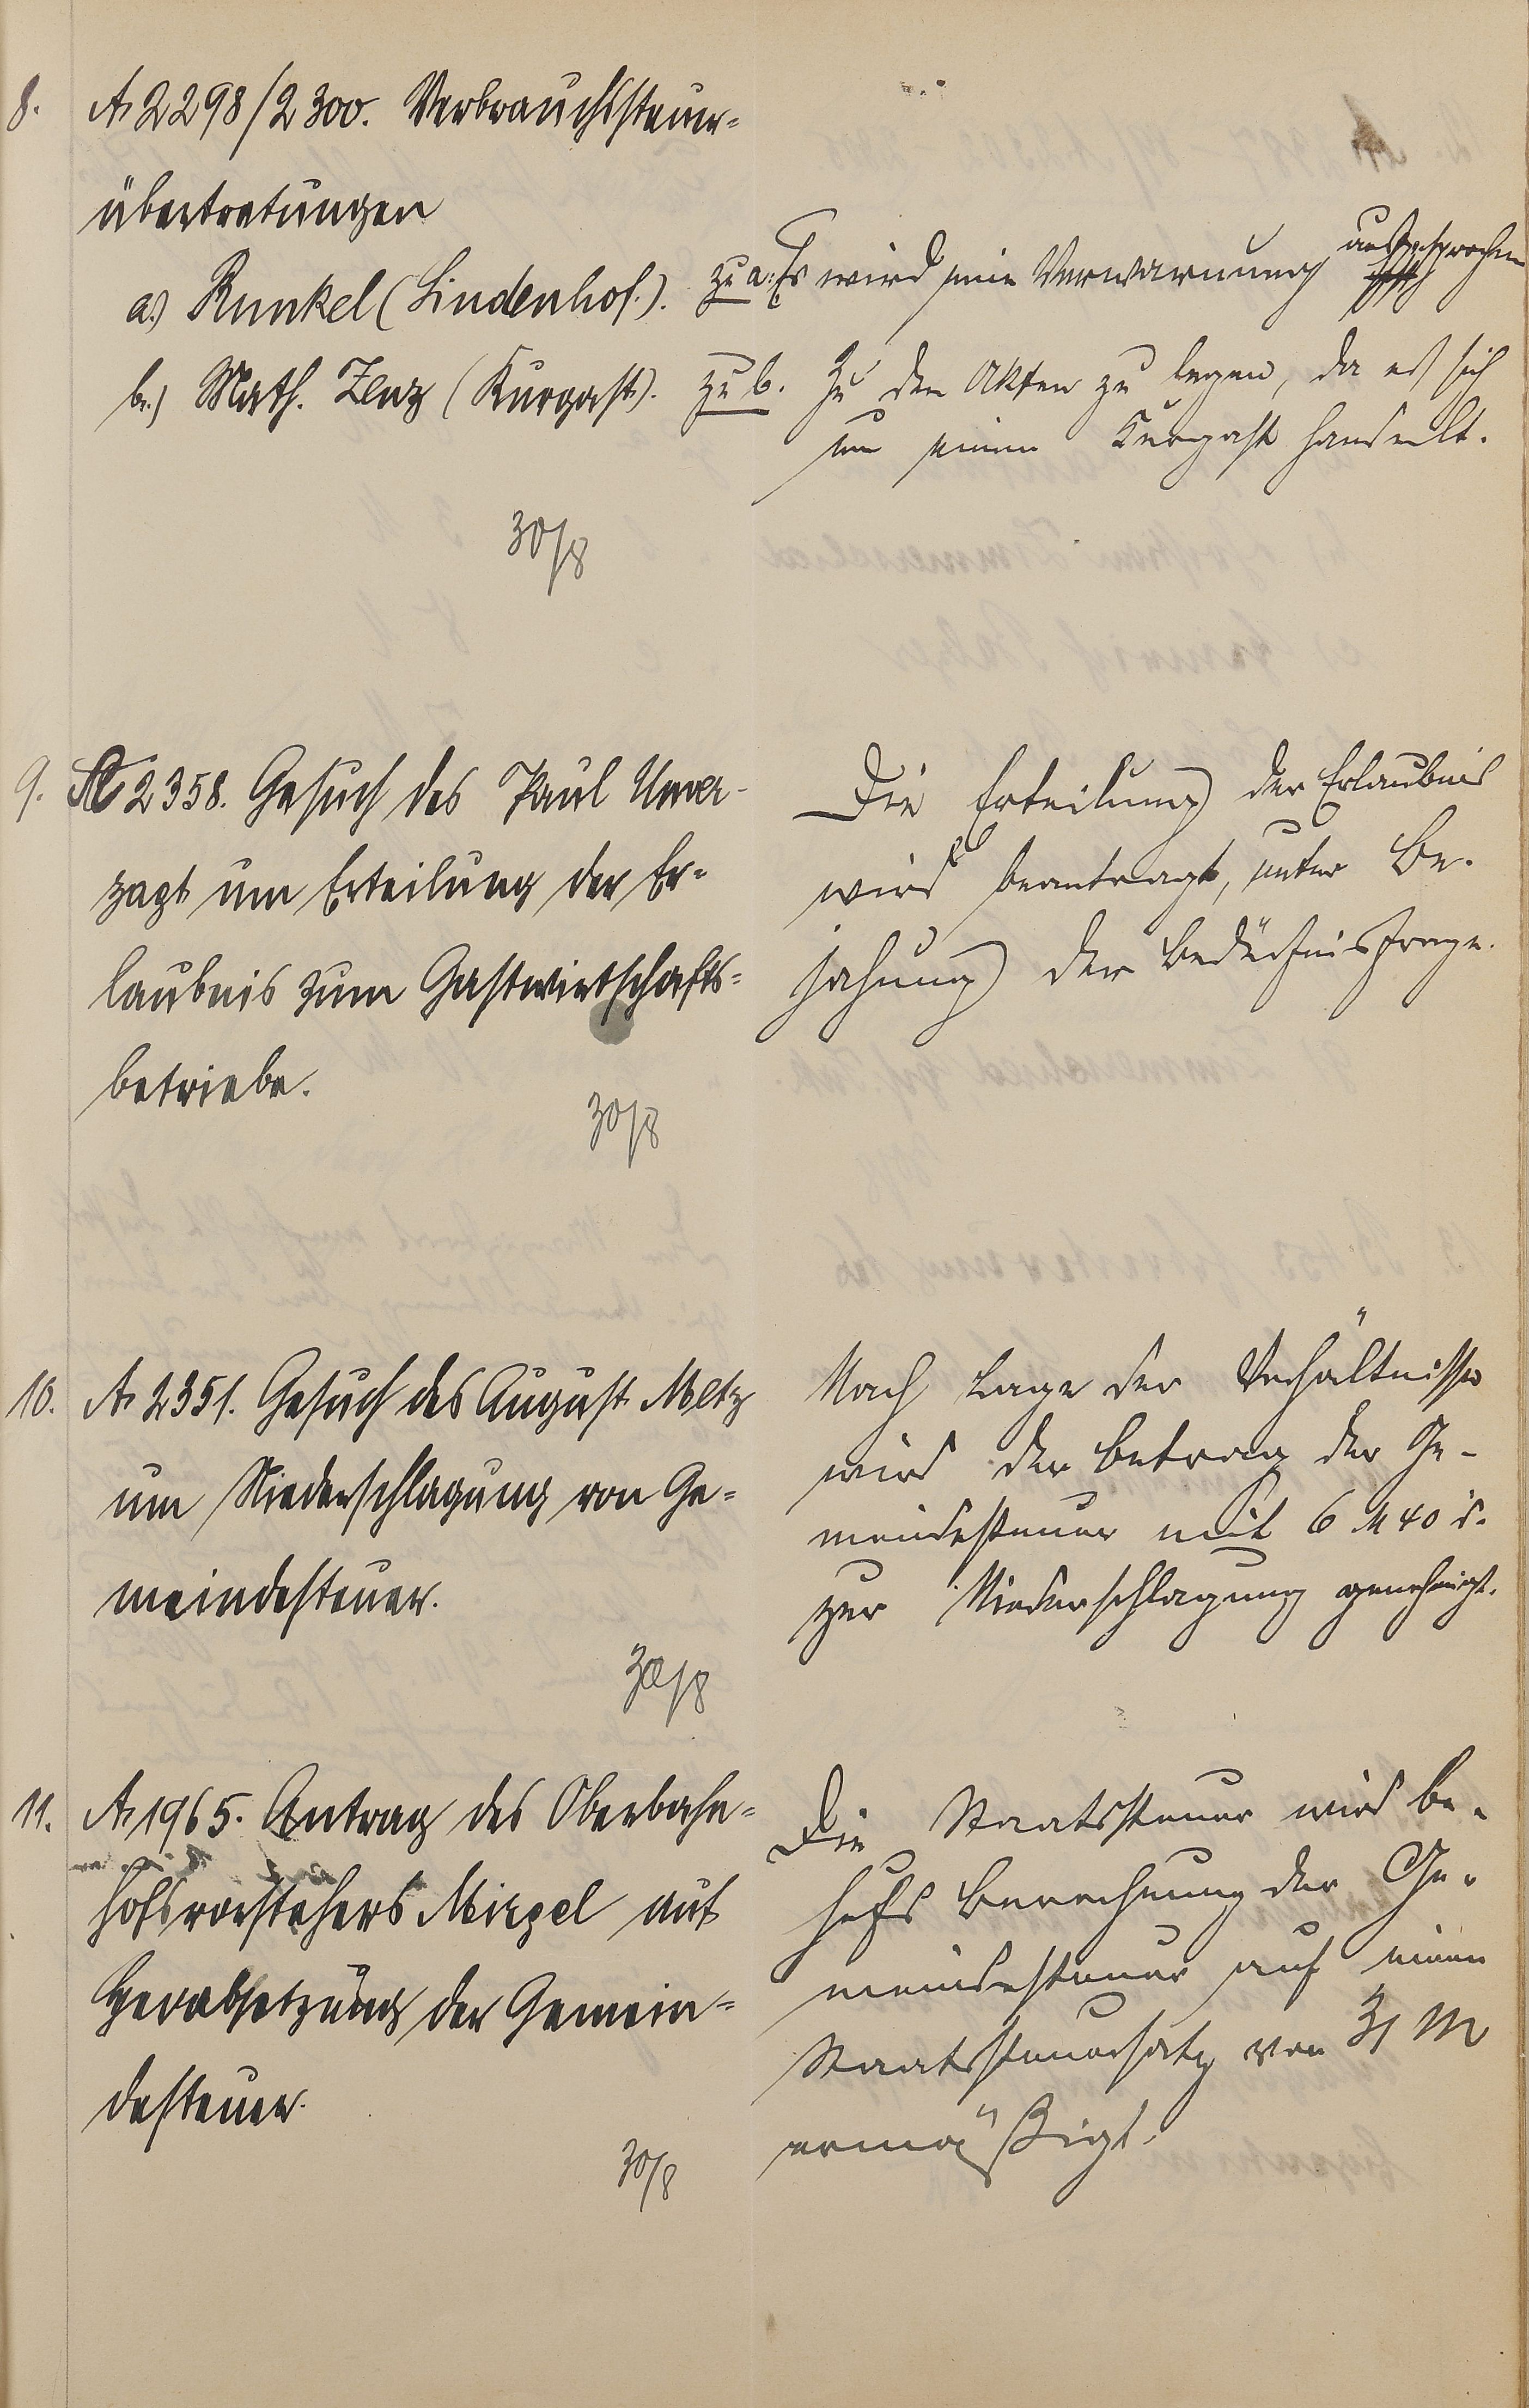 8. A 2298/2300. Verbrauchssteuer=
übertretungen
a.) Runkel (Lindenhof.).
b.) Math. Zenz (Kurgast).
zu a: Es wird eine Verwarnung ausgesprochen
zu b. Zu den Akten zu legen, da es sich
um einen Kurgast handelt.
30/8
9. A 2358. Gesuch des Paul Unver-
zagt um Erteilung der Er=
laubnis zum Gastwirtschafts=
betriebe.
30/8
Die Erteilung der Erlaubnis
wird beantragt, unter Be-
jahung der Bedürfnisfrage.
10. A 2351. Gesuch des August Metz
um Niederschlagung von Ge=
meindesteuer.
30/8
Nach Lage der Verhältnisse
wird der Betrag der Ge-
meindesteuer mit 6 M 40 d.
zur Niederschlagung genehmigt.
11. A 1965. Antrag des Oberbahn=
hofsvorstehers Mirgel auf
Herabsetzung der Gemein=
desteuer.
30/8
Die Staatssteuer wird be-
hufs Berechnung der Ge-
meindesteuer auf einen
Staatssteuersatz von 31 M
ermäßigt.